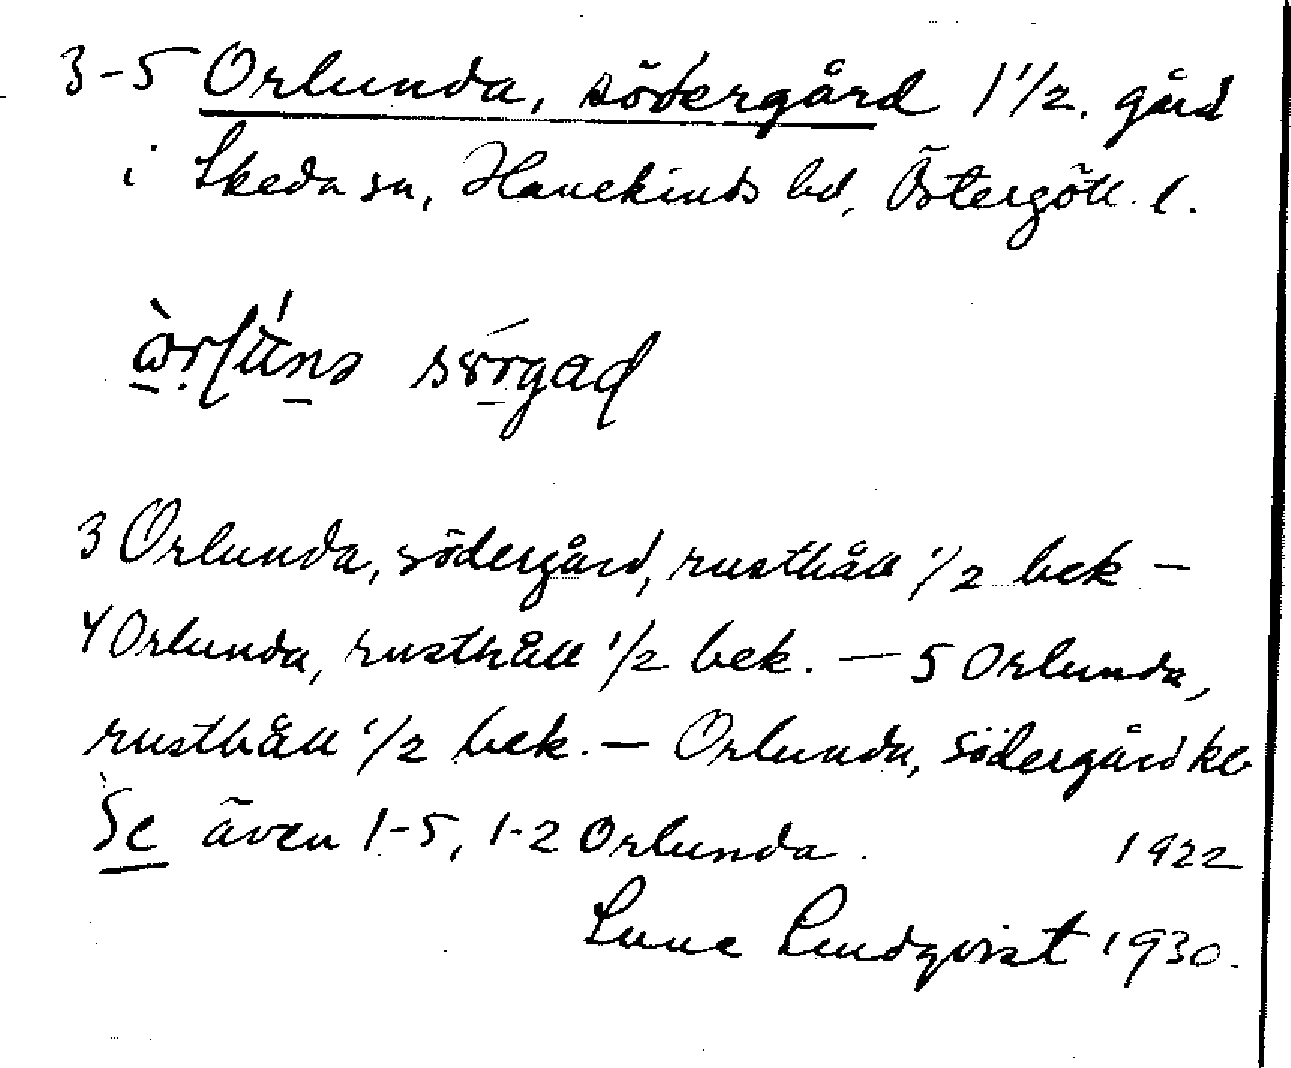 3-5 Orlunda, södergård 1 1/2. gård
i Skeda sn, Hanekinds hd, Östergötl. l.
3 Orlunda, södergård, rusthåll 1/2 bek –
4 Orlunda, rusthåll 1/2 bek. – 5 Orlunda,
rusthåll 1/2 bek. – Orlunda, södergård kb
Se även 1-5, 1-2 Orlunda. 1922
Sune Lindqvist 1930.